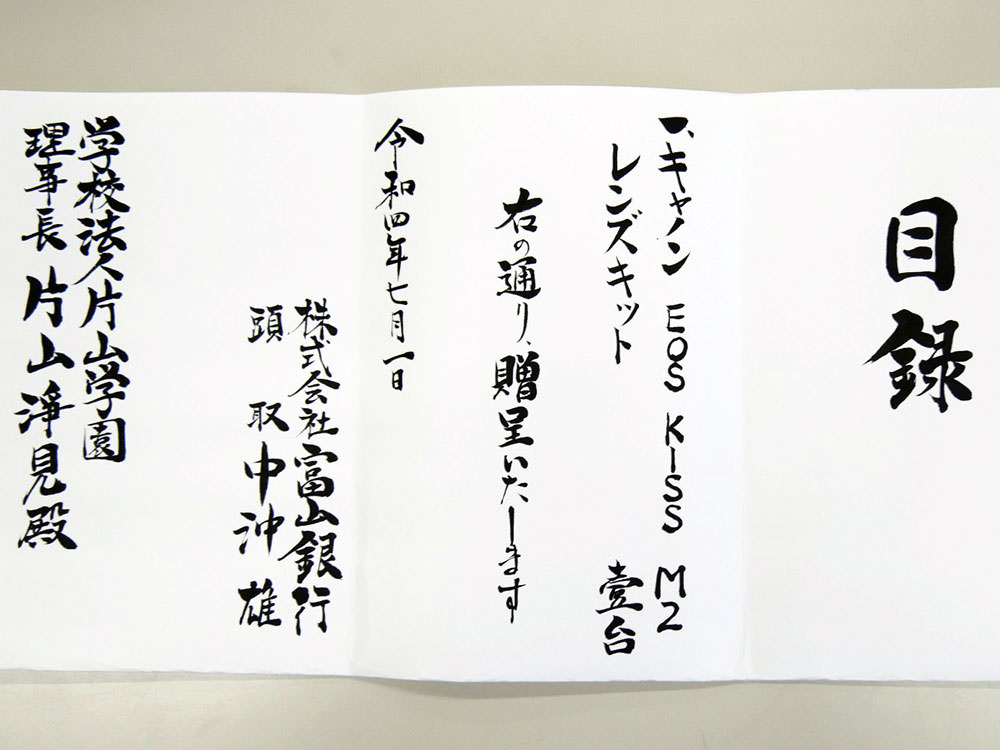 目録
一、キャノン EOS KISS M2
レンズキット 壹台
右の通り、贈呈いたします
令和四年七月一日
株式会社富山銀行
頭取 中沖雄
学校法人片山学園
理事長 片山淨見殿